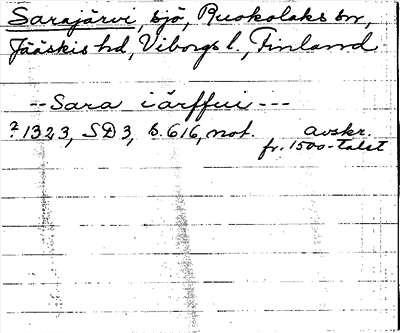 Sarajärvi, sjö, Ruokolaks sn,
Jääskis hd, Viborgs l., Finland
-- Sara iärffui ---
? 1323, SD3, s. 616, not. avskr.
fr. 1500-talet